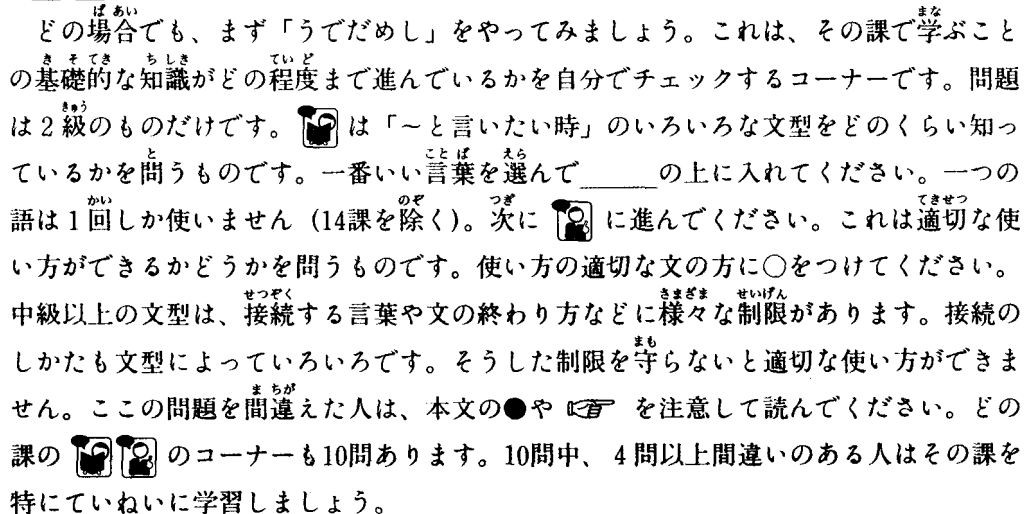 どの場合でも、まず「うでだめし」をやってみましょう。これは、その課で学ぶこと
の基礎的な知識がどの程度まで進んでいるかを自分でチェックするコーナーです。問題
は2級のものだけです。 は「～と言いたい時」のいろいろな文型をどのくらい知っ
ているかを問うものです。一番いい言葉を選んで______の上に入れてください。一つの
語は1回しか使いません(14課を除く)。次に に進んでください。これは適切な使
い方ができるかどうかを問うものです。使い方の適切な文の方に○をつけてください。
中級以上の文型は、接続する言葉や文の終わり方などに様々な制限があります。接続の
しかたも文型によっていろいろです。そうした制限を守らないと適切な使い方ができま
せん。ここの問題を間違えた人は、本文の●や☞を注意して読んでください。どの
課の のコーナーも10問あります。10問中、4問以上間違いのある人はその課を
特にていねいに学習しましょう。